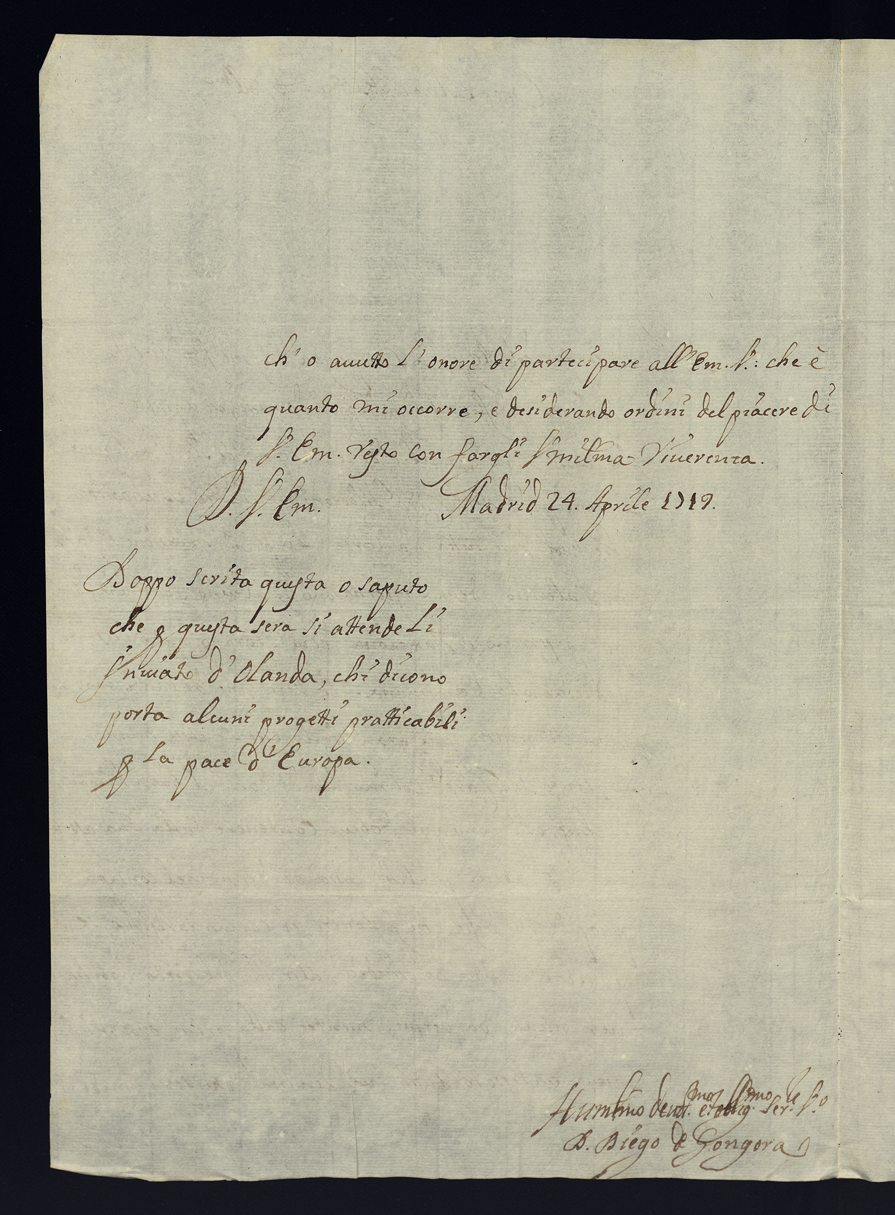 ch' o auutto l' onore di partecipare all' Em. S.: che è
quanto mi occorre, e desiderando ordini del piacere di
S. Em. resto con fargli riuerenza.
D. S. Em. Madrid 24. Aprile 1719.
Doppo scrita questa o saputo
che p questa sera si attende Li
Inuiato d' Olanda, chi dicono
porta alcuni progetti pratticabili
p la pace d' Europa.
Humlmo deuos.mo et oblig.mo Ser.e S.o
D. Diego de Gongora